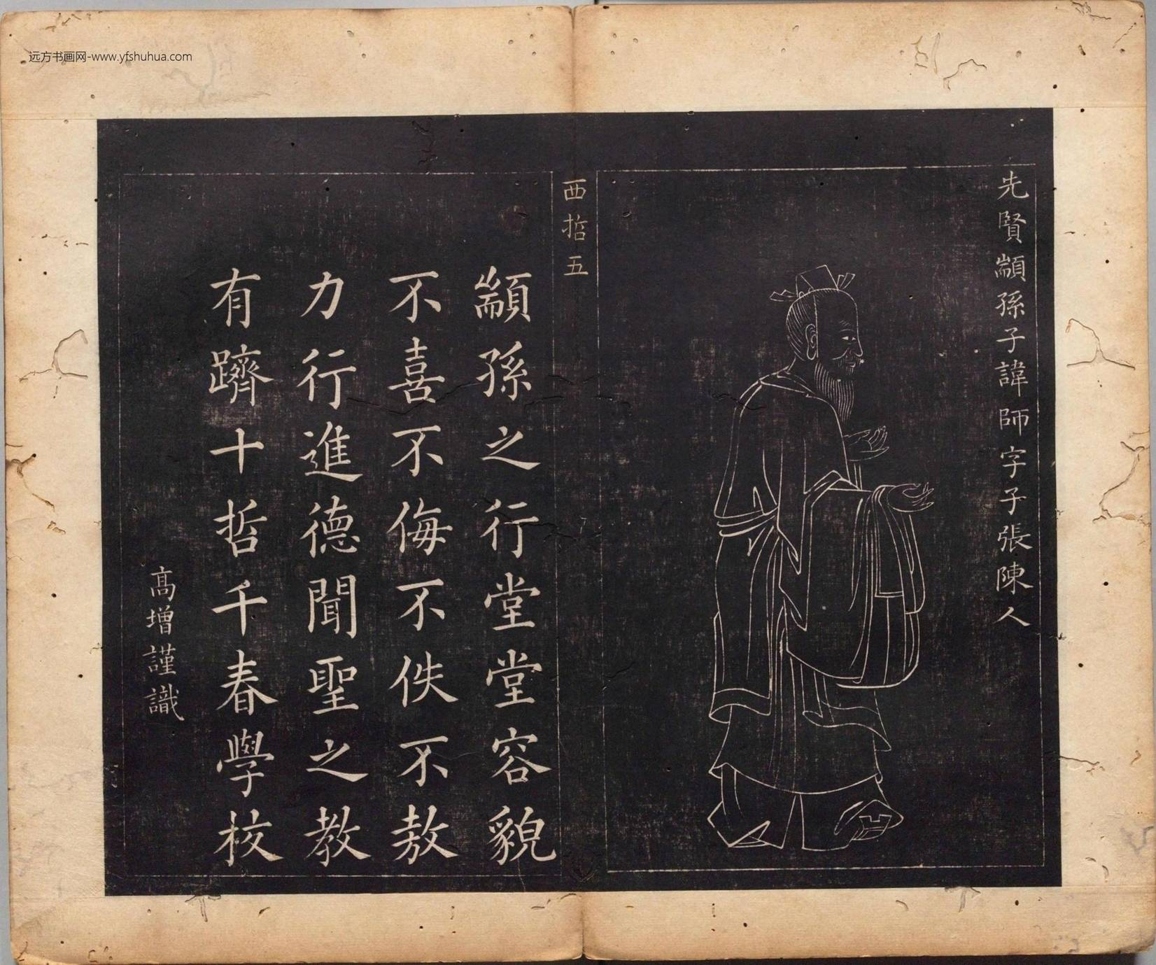 远方书画网-www.yfshuhua.com
先賢顓孫子諱師字子張陳人
西哲五
顓孫之行堂堂容貌
不喜不侮不佚不敖
力行進德聞聖之教
有躋十哲千春學校
高增謹識